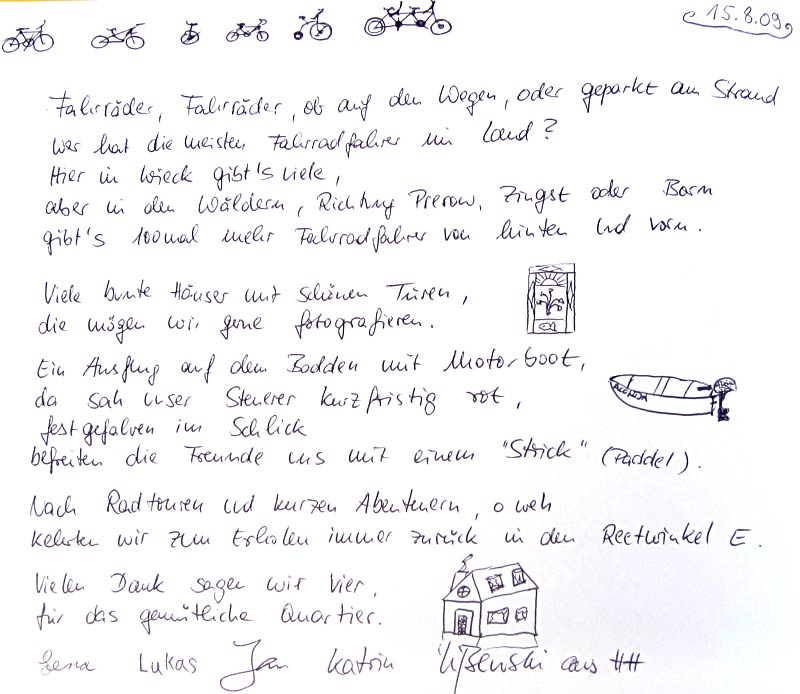 15.8.09
Fahrräder, Fahrräder, ob auf den Wegen, oder geparkt am Strand
Wer hat die meisten Fahrradfahrer im Land?
Hier in Wieck gibt's viele,
aber in den Wäldern, Richtung Prerow, Zingst oder Born
gibt's 100mal mehr Fahrradfahrer von hinten und vorn.
Viele bunte Häuser mit schönen Türen,
die mögen wir gerne fotografieren.
Ein Ausflug auf dem Bodden mit Motorboot,
da sah unser Steuerer kurzfristig rot,
festgefahren im Schlick
befreiten die Freunde uns mit einem "Strick" (Paddel).
Nach Radtouren und kurzen Abenteuern, o weh
kehrten wir zum Erholen immer zurück in den Reetwinkel E.
Vielen Dank sagen wir vier,
für das gemütliche Quartier.
Lukas Jan Katrin aus HH